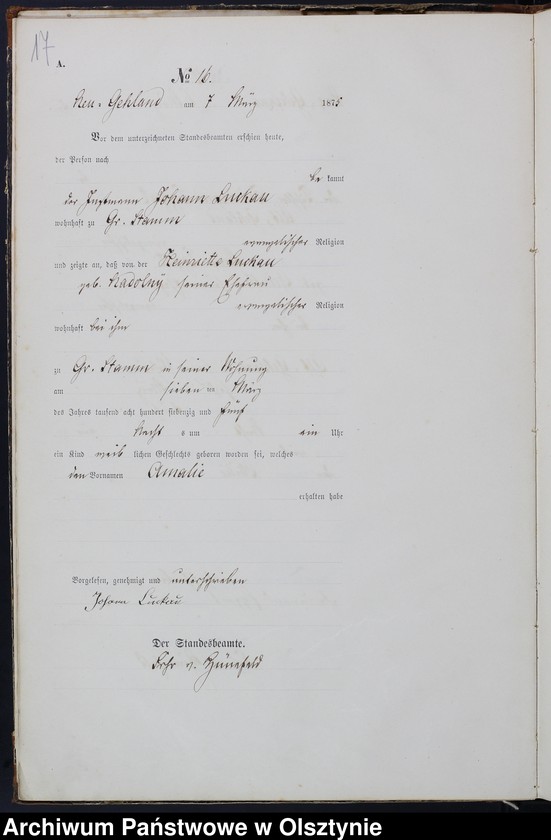 17
A.
No 16.
Neu-Gehland am 7 März 1875
Vor dem unterzeichneten Standesbeamten erschien heute,
der Person nach
be kannt
der Instmann Johann Luckau
wohnhaft zu Gr. Stamm
evangelischer Religion
und zeigte an, daß von der Heinriette Luckau
geb. Nadolny seiner Ehefrau
evangelischer Religion
wohnhaft bei ihm
zu Gr. Stamm in seiner Wohnung
am sieben ten März
des Jahres tausend acht hundert siebenzig und fünf
Nacht s um ein Uhr
ein Kind weib lichen Geschlechts geboren worden sei, welches
den Vornamen Amalie
erhalten habe
Vorgelesen, genehmigt und unterschrieben
Johann Luckau
Der Standesbeamte.
Frhr v. Hünefeld
Archiwum Państwowe w Olsztynie